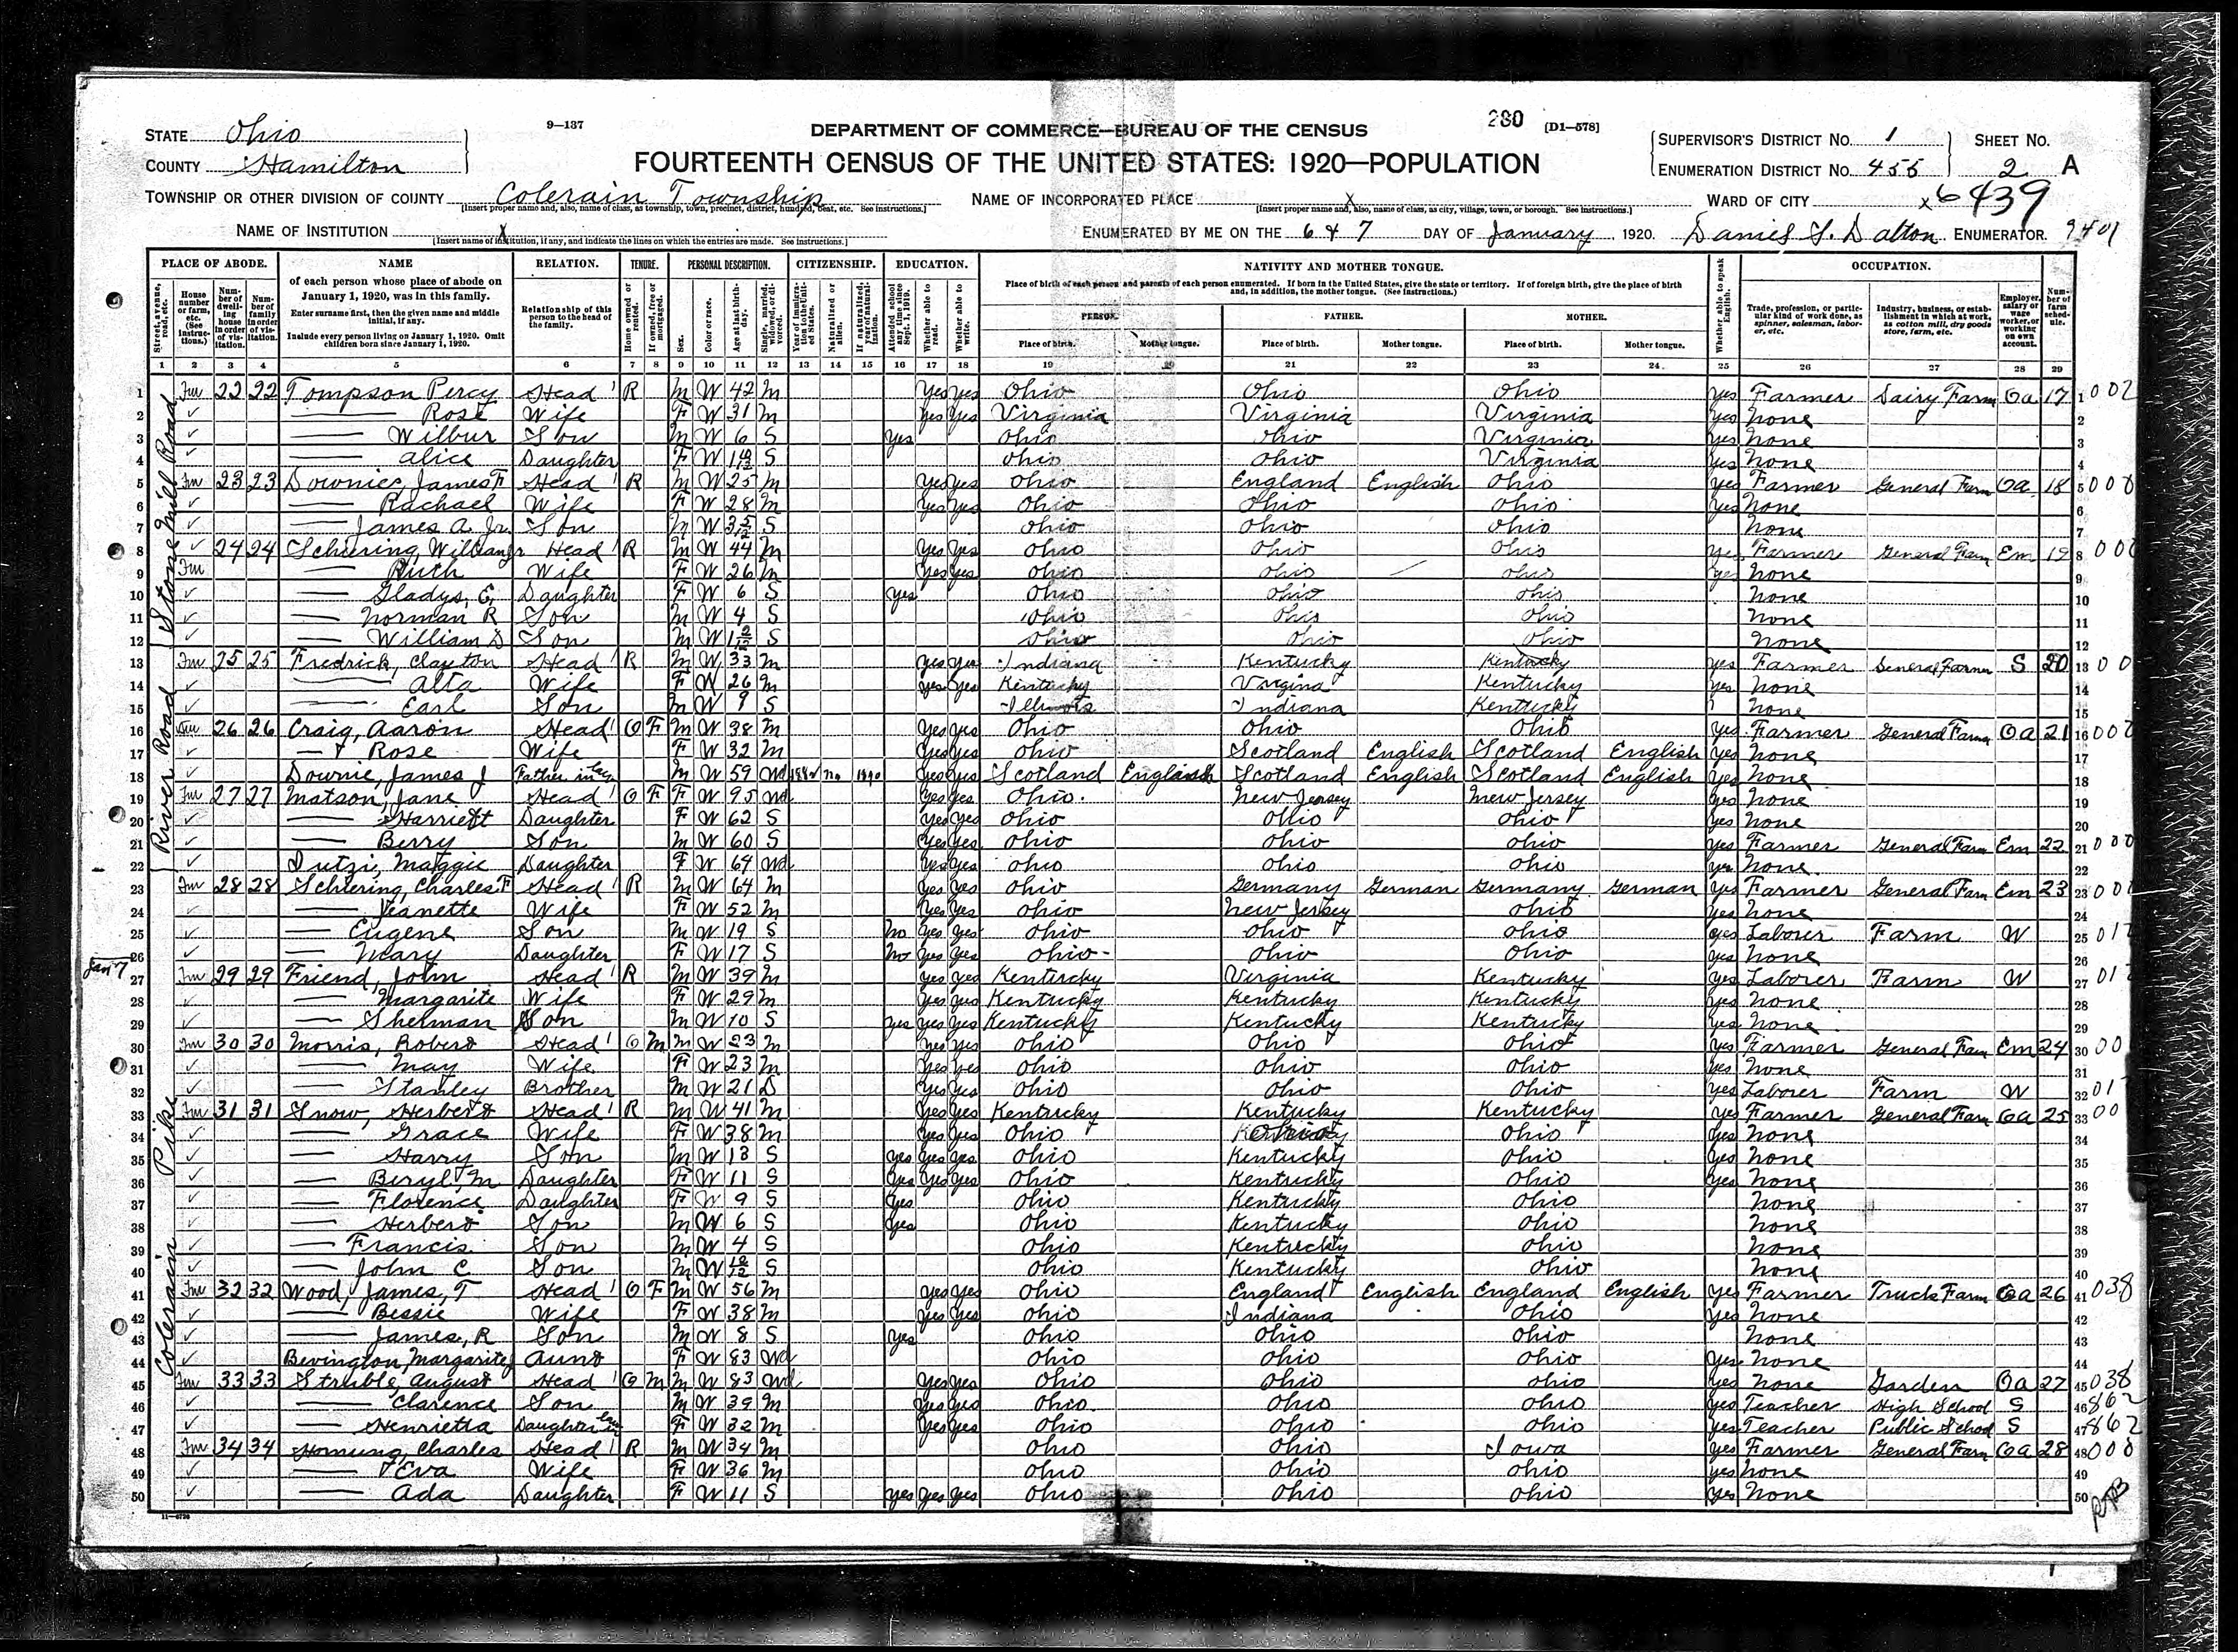 280 [D1-578]
9-137
STATE Ohio
COUNTY Hamilton
TOWNSHIP OR OTHER DIVISION OF COUNTY Colerain Township
[Insert proper name and, also, name of class, as township, town, precinct, district, hundred, beat, etc. See instructions.]
NAME OF INSTITUTION X
[Insert name of institution, if any, and indicate the lines on which the entries are made. See instructions.]
DEPARTMENT OF COMMERCE—BUREAU OF THE CENSUS
FOURTEENTH CENSUS OF THE UNITED STATES: 1920—POPULATION
NAME OF INCORPORATED PLACE X
[Insert proper name and, also, name of class, as city, village, town, or borough. See instructions.]
ENUMERATED BY ME ON THE 6 & 7 DAY OF January, 1920. ENUMERATOR.
SUPERVISOR'S DISTRICT No. 1
ENUMERATION DISTRICT No. 455
SHEET No. 2 A
WARD OF CITY x 6439
PLACE OF ABODE. NAME RELATION. TENURE. PERSONAL DESCRIPTION. CITIZENSHIP. EDUCATION. NATIVITY AND MOTHER TONGUE. OCCUPATION.
1 2 3 4 5 6 7 8 9 10 11 12 13 14 15 16 17 18 19 20 21 22 23 24 25 26 27 28 29
Stone Mill Road
River Road
Colerain Pike
Jan 7
1 Fm 22 22 Tompson Percy Head 1 R M W 42 M Yes Yes Ohio Ohio Ohio Yes Farmer Dairy Farm Oa 17 1
2 ✓ — Rose Wife F W 31 M Yes Yes Virginia Virginia Virginia Yes None 2
3 ✓ — Wilbur Son M W 6 S Yes Ohio Ohio Virginia Yes None 3
4 ✓ — Alice Daughter F W S Ohio Ohio Virginia Yes None 4
5 Fm 23 23 Downie, James F Head 1 R M W 25 M Yes Yes Ohio England English Ohio Yes Farmer General Farm Oa 18 5
6 ✓ — Rachael Wife F W 28 M Yes Yes Ohio Ohio Ohio Yes None 6
7 ✓ — James A. Jr Son M W S Ohio Ohio Ohio None 7
8 ✓ 24 24 Schiering, William Jr Head 1 R M W 44 M Yes Yes Ohio Ohio Ohio Yes Farmer General Farm Em 19 8
9 Fm — Ruth Wife F W 26 M Yes Yes Ohio Ohio Ohio Yes None 9
10 ✓ — Gladys, E, Daughter F W 6 S Yes Ohio Ohio Ohio None 10
11 ✓ — Norman R Son M W 4 S Ohio Ohio Ohio None 11
12 ✓ — William D Son M W S Ohio Ohio Ohio None 12
13 Fm 25 25 Fredrick, Clayton Head 1 R M W 33 M Yes Yes Indiana Kentucky Kentucky Yes Farmer General Farmer S 20 13
14 ✓ — Alta Wife F W 26 M Yes Yes Kentucky Virgina Kentucky Yes None 14
15 ✓ — Earl Son M W 9 S Illinois Indiana Kentucky None 15
16 Fm 26 26 Craig, Aaron Head 1 O F M W 38 M Yes Yes Ohio Ohio Ohio Yes Farmer General Farm Oa 21 16
17 ✓ — Rose Wife F W 32 M Yes Yes Ohio Scotland English Scotland English Yes None 17
18 ✓ Downie, James J Father in law M W 59 Wd Na 1890 Yes Yes Scotland English Scotland English Scotland English Yes None 18
19 Fm 27 27 Matson, Jane Head 1 O F F W 95 Wd Yes Yes Ohio New Jersey New Jersey Yes None 19
20 ✓ — Harriett Daughter F W 62 S Yes Yes Ohio Ohio Ohio Yes None 20
21 ✓ — Berry Son M W 60 S Yes Yes Ohio Ohio Ohio Yes Farmer General Farm Em 22 21
22 ✓ Maggie Daughter F W 64 Wd Yes Yes Ohio Ohio Ohio Yes None 22
23 Fm 28 28 Schiering, Charles F Head 1 R M W 64 M Yes Yes Ohio Germany German Germany German Yes Farmer General Farm Em 23 23
24 ✓ — Jeanette Wife F W 52 M Yes Yes Ohio New Jersey Ohio Yes None 24
25 ✓ — Eugene Son M W 19 S No Yes Yes Ohio Ohio Ohio Yes Laborer Farm W 25
26 ✓ — Mary Daughter F W 17 S No Yes Yes Ohio Ohio Ohio Yes None 26
27 Fm 29 29 Friend, John Head 1 R M W 39 M Yes Yes Kentucky Virginia Kentucky Yes Laborer Farm W 27
28 ✓ — Margarite Wife F W 29 M Yes Yes Kentucky Kentucky Kentucky Yes None 28
29 ✓ — Sherman Son M W 10 S Yes Yes Yes Kentucky Kentucky Kentucky Yes None 29
30 Fm 30 30 Morris, Robert Head 1 O M M W 23 M Yes Yes Ohio Ohio Ohio Yes Farmer General Farm Em 24 30
31 ✓ — May Wife F W 23 M Yes Yes Ohio Ohio Ohio Yes None 31
32 ✓ — Stanley Brother M W 21 D Yes Yes Ohio Ohio Ohio Yes Laborer Farm W 32
33 Fm 31 31 Snow, Herbert Head 1 R M W 41 M Yes Yes Kentucky Kentucky Kentucky Yes Farmer General Farm Oa 25 33
34 ✓ — Grace Wife F W 38 M Yes Yes Ohio Ohio Ohio Yes None 34
35 ✓ — Harry Son M W 13 S Yes Yes Yes Ohio Kentucky Ohio Yes None 35
36 ✓ — Beryl, M Daughter F W 11 S Yes Yes Yes Ohio Kentucky Ohio Yes None 36
37 ✓ — Florence Daughter F W 9 S Yes Ohio Kentucky Ohio None 37
38 ✓ — Herbert Son M W 6 S Yes Ohio Kentucky Ohio None 38
39 ✓ — Francis Son M W 4 S Ohio Kentucky Ohio None 39
40 ✓ — John C Son M W S Ohio Kentucky Ohio None 40
41 Fm 32 32 Wood, James, T Head 1 O F M W 56 M Yes Yes Ohio England English England English Yes Farmer Truck Farm Oa 26 41 038
42 ✓ — Bessie Wife F W 38 M Yes Yes Ohio Indiana Ohio Yes None 42
43 ✓ — James, R Son M W 8 S Yes Ohio Ohio Ohio None 43
44 ✓ Bevington, Margarite Aunt F W 83 Wd Ohio Ohio Ohio Yes None 44
45 Fm 33 33 Struble, August Head 1 O M M W 83 Wd Yes Yes Ohio Ohio Ohio Yes None Garden Oa 27 45 038
46 ✓ — Clarence Son M W 39 M Yes Yes Ohio Ohio Ohio Yes Teacher High School S 46 862
47 ✓ — Henrietta Daughter in law F W 32 M Yes Yes Ohio Ohio Ohio Yes Teacher Public School S 47 862
48 Fm 34 34 Hornung, Charles Head 1 R M W 34 M Ohio Ohio Iowa Yes Farmer General Farm Oa 28 48 000
49 ✓ — Eva Wife F W 36 M Ohio Ohio Ohio Yes None 49
50 ✓ — Ada Daughter F W 11 S Yes Yes Yes Ohio Ohio Ohio Yes None 50